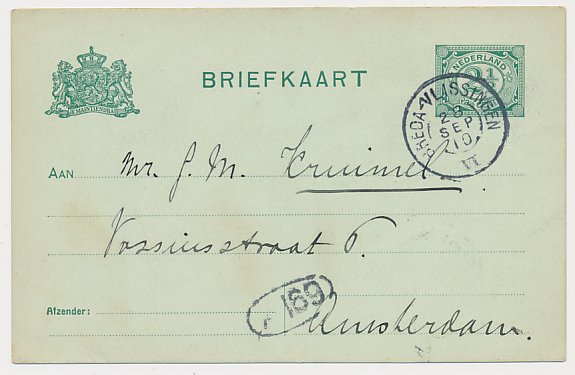 NEDERLAND
2½
JE MAINTIENDRAI
BRIEFKAART
BREDA-VLISSINGEN
23
SEP
10
VI
AAN Mr. J. M. Kruimel
Vossiusstraat 6.
169
Afzender: Amsterdam.